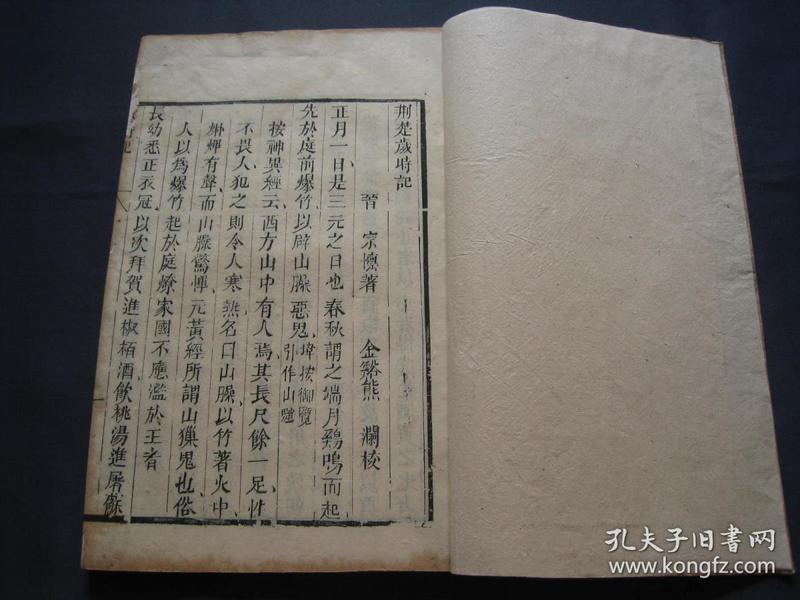 荆楚歲時記
晉　宗懍著　金谿熊　澜校
正月一日是三元之日也春秋謂之端月鷄鳴而起
先於庭前爆竹以辟山臊惡鬼 埠按御覽引作山魈
按神異經云西方山中有人焉其長尺餘一足性
不畏人犯之則令人寒熱名曰山臊以竹著火中
烞熚有聲而山臊驚憚元黃經所謂山㺐鬼也俗
人以爲爆竹起於庭燎家國不應濫於王者
長幼悉正衣冠以次拜賀進椒栢酒飲桃湯進屠蘇
孔夫子旧书网
www.kongfz.com